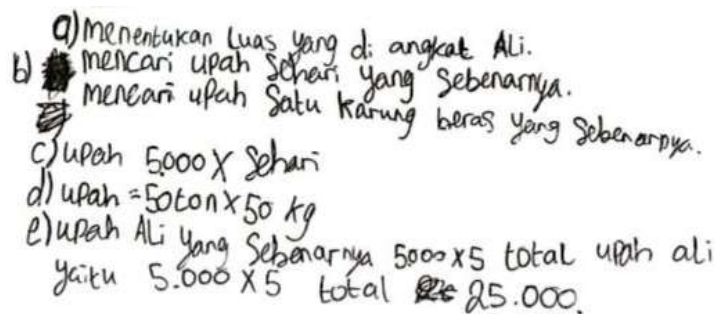 a) menentukan Luas yang di angkat Ali.
b) mencari upah Sehari yang Sebenarnya.
mencari upah Satu karung beras yang Sebenarnya.
c) upah 5.000 X Sehari
d) upah = 50 ton X 50 kg
e) upah Ali yang Sebenarnya 5000 x 5 total upah ali
yaitu 5.000 X 5 total 25.000.